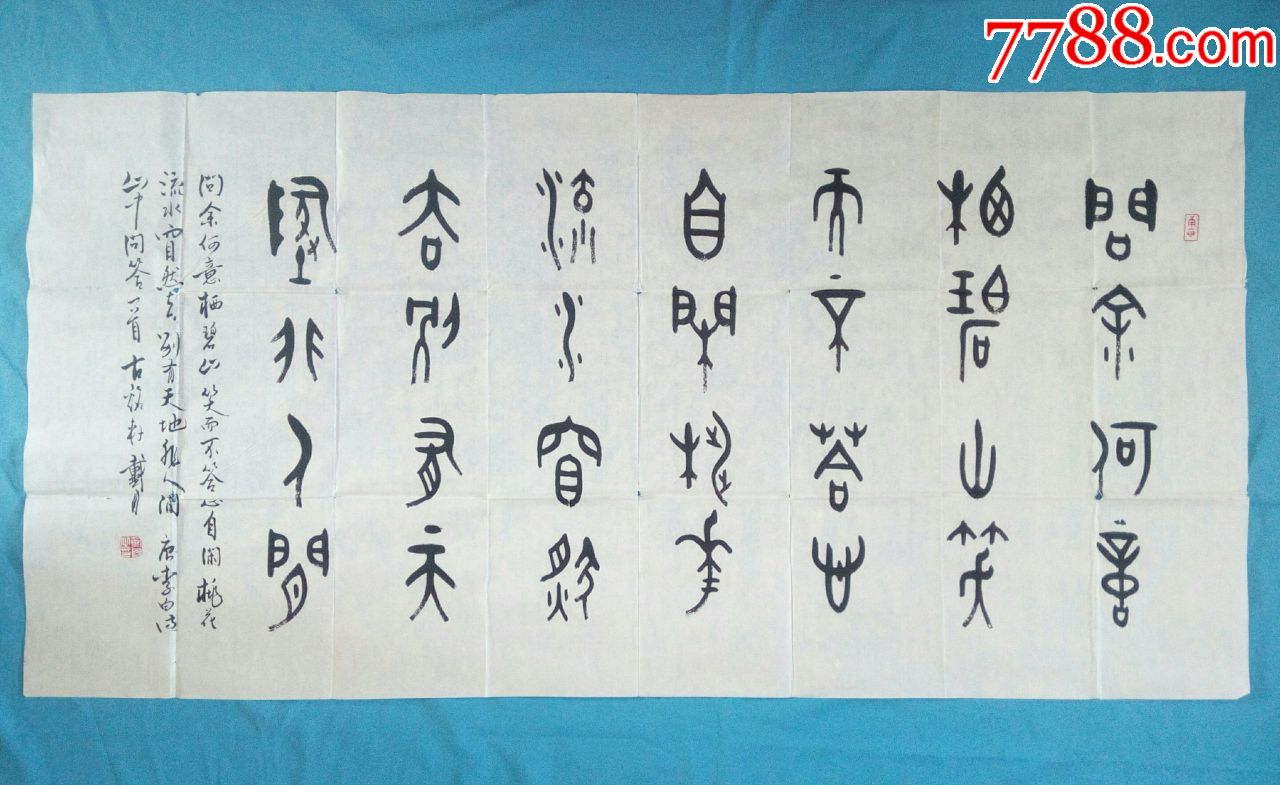 7788.com
問余何意
栖碧山笑
而不答心
自閑桃花
流水窅然
去別有天
地非人間
问余何意栖碧山笑而不答心自闲桃花
流水窅然去别有天地非人间 唐李白诗
山中问答一首 古